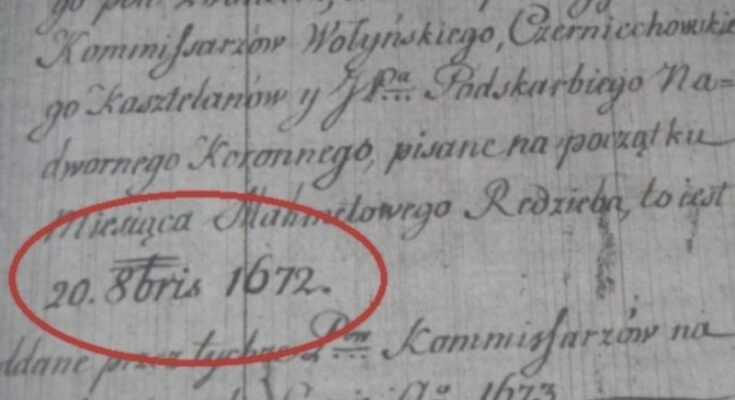 go pod
Kommissarzów Wołyńskiego, Czerniechowskie
go Kasztelanów y J Pa Podskarbiego Na=
dwornego Koronnego, pisane na początku
Miesiąca Mahmetowego Redzieba, to iest
20. 8bris 1672.
oddane przez tychże Pow Kommissarzów na
1673